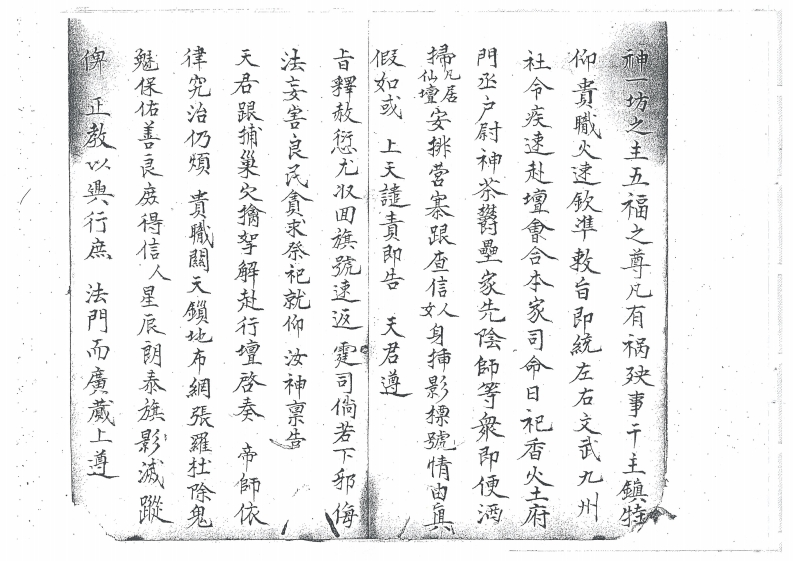 神一坊之主五福之尊凡有禍殃事干主鎮特
仰貴職火速欽準敕旨即統左右文武九州
社令疾速赴壇會合本家司命日祀香火土府
門丞户尉神荼鬱壘家先陰師等衆即便洒
掃凡居仙壇安排营寨跟查信人女身揷影摽號情由眞
假如或 上天譴責即告 天君遵
旨釋赦愆尤収囬旗號速返 霆司倘若下邪侮
法妄害良民貪求祭祀就仰 汝神禀告
天君跟捕巢穴擒拏解赴行壇啓奏 帝師依
律究治仍煩 貴職闗天鎖地布網張羅杜除鬼
魅保佑善良庻得信人星辰朗泰旗影滅蹤
俾 正教以興行庶 法門而廣蕆上遵